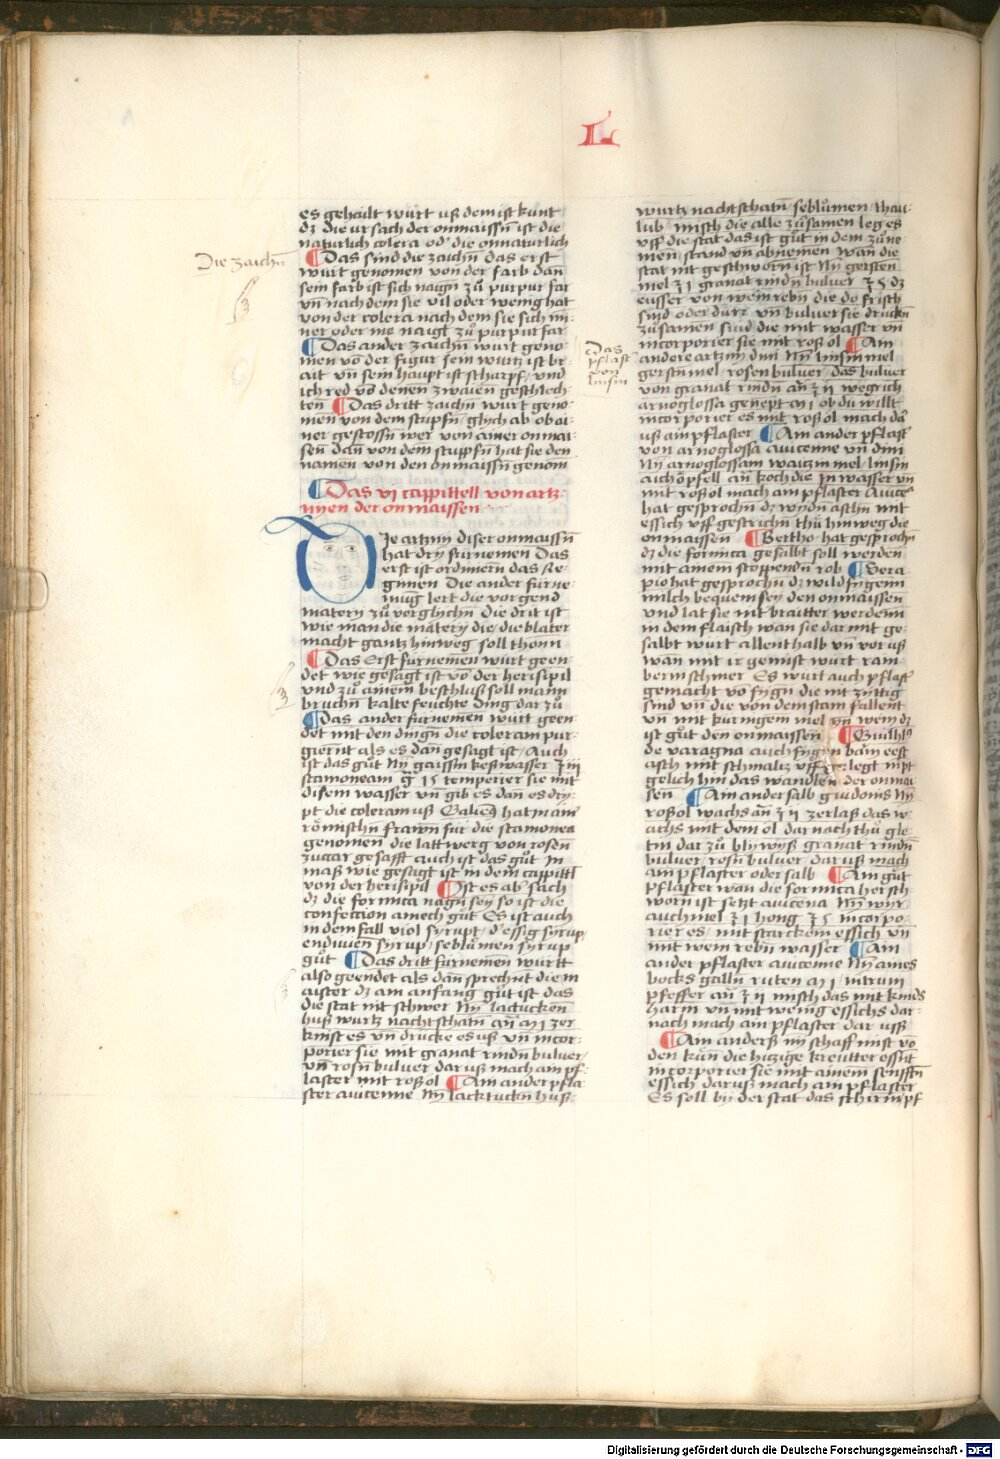 L
es gehailt wurt uß dem ist kunt
dz die ursach der onmaissn̄ ist die
naturlich colera od' die onnaturlich
¶ Das sind die zaichn̄ das erst
wurt genomen von der farb dan̄
sein farb ist sich naign zů purpur far
vn̄ nach dem sie vil oder wenig hat
von der colera nach dem sie sich in
ner oder me naigt zů purpur far
¶ Das ander zaichn̄ wurt geno
men vō der figur sein wurtz ist br
ait vn̄ sein haupt ist scharpf / und
ich red vō denen zwaien geschlech
ten ¶ Das dritt zaichn̄ wurt geno
men von dem stupfn̄ glych ab ob ai
ner gestossn̄ wer von ainer onmai
sen dan̄ von dem stupfn̄ hat sie den
namen von den onmaissn̄ genom
¶ Das vi cappittell von artz
nyen der onmaissen
Die artzny diser onmaissn̄
hat dry furnemen Das
erst ist ordiniern̄ das Re
giment Die ander furne
mug lert die vorgend
matery zů verglychn̄ Die drit ist
wie man die matery die / die blater
macht gantz hinweg soll thonn
¶ Das Erst furnemen wurt geen
det wie gesagt ist vō der herisipil
vnd zů ainem beschluß soll mann
bruchn̄ kalte feuchte ding dar zů
¶ Das ander furnemen wurt geen
det mit den dingn̄ die coleram pur
giernt als es dan̄ gesagt ist / Auch
ist das gůt Ny gaissin keßwasser ʒ iii
scamoneam g̃ 15 temperier sie mit
disem wasser vn̄ gib es dan̄ es dry
pt die coleram uß Galien9 hat in aim
rőmischn̄ frawn̄ fur die scamonea
genomen̄ die lattwerg von rosen
zuckar gesafft auch ist das gůt In
maß wie gesagt ist in dem cappittl
von der herisipil ¶ Ist es ab' sach
dz die formica nagn̄ sey so ist die
confection amech gůt Es ist auch
in dem fall viol syrupt / d' essig syrup /
endivien̄ syrup / seblůmen syrup
gůt ¶ Das dritt furnemen̄ wurtt
also geendet als dan̄ sprechnt die m
aister dz am anfang gůt ist das
die stat nit schwer Ny lactucken̄
huß wurtz nachtschatn̄ an̄ m i zer
knist es vn̄ drucke es uß vn̄ incor
porier sie mit granat rindn̄ bulver /
vn̄ rosn̄ bulver dar uß mach am pf
laster mit roß ol ¶ Am ander pfla
ster avicenne Ny lacktuckn̄ huß
wurtz nachtschatn̄ seblůmen / thau
lub / misch die alle zůsamen leg es
vff die stat das ist gůt in dem zůne
men / stand vn̄ abnemen wan die
stat nit geschworn̄ ist Ny gersten
mel ʒ i granat rindn̄ bulver ʒ 5 dz
eusser von wein rebn̄ die do frisch
sind oder důrr vn̄ bulver sie druckn̄
zůsamen sind die mit wasser vn̄
incorporier sie mit roß ol ¶ Am
andere artzny dini Ny linsin mel
gerstn̄ mel rosen bulver das bulver
von granat rindn̄ an̄ ʒ ii wegrich
arnoglossa genept m i ob du willt
incorporier es mit roß ol mach da
uß am pflaster ¶ Am ander pflast'
von arnoglossa avicenne vn̄ dini
Ny arnoglossam waitzin mel / linsin
auch őpfell an̄ koch die in wasser vn̄
mit roß ol mach am pflaster Avice'
hat gesprochn̄ dz wydn̄ aschn̄ mit
essich vff gestrichn̄ thů hinweg die
onmaissen ¶ Bertho hat gesproch̄n
dz die formica gesalbt soll werden
mit ainem stoppendn̄ rob ¶ Sera
pio hat gesprochn̄ dz wild fygenn̄
milch bequem sey den onmaissen
und lat sie nit braitter werdenn̄
in dem flaisch wan sie dar mit ge
salbt wurt allenthalb vn̄ vor uß
wan mit ir gemist wurt ram
bern schmer Es wurt auch pflast'
gemacht vō fygn̄ die nit zyttig
sind vn̄ die von dem stam fallent
vn̄ mit kurnigem mel vn̄ wem dz
ist gůt den onmaissen ¶ Guilhl9
de varagna auch fygen bain eest
asch mit schmaltz vff legt nipt
gelich hin das wandlen der onmai
sen ¶ Am ander salb guidonis Ny
roß ol wachs an̄ ʒ ii zerlaß das w
achs mit dem ol dar nach thů gle
tin dar zů blywyß granat rindn̄
bulver rosn̄ bulver / dar uß mach
am pflaster oder salb ¶ Am gůt
pflaster wan die formica her sch
worn ist setzt avicena Ny wyr
auch mel ʒ i hong ʒ 5 incorpo
rier es / mit starckem essich vn̄
mit wein rebn̄ wasser ¶ Am
ander pflaster avicenne Ny ames
bocks galln̄ ruten m i nitrum
pfeffer an̄ ʒ ii misch das mit kinds
harn vn̄ mit wenig essichs dar
nach mach am pflaster dar uss
¶ Am anderß ny schaff mist vō
den kůn̄ die hitzige kreutter essn̄t
incorporier sie mit ainem senfften
essich dar uß mach am pflaster
Es soll by der stat das schirmpf
Die zaichn̄
Das
pflast'
von
linsin
Digitalisierung gefördert durch die Deutsche Forschungsgemeinschaft - DFG